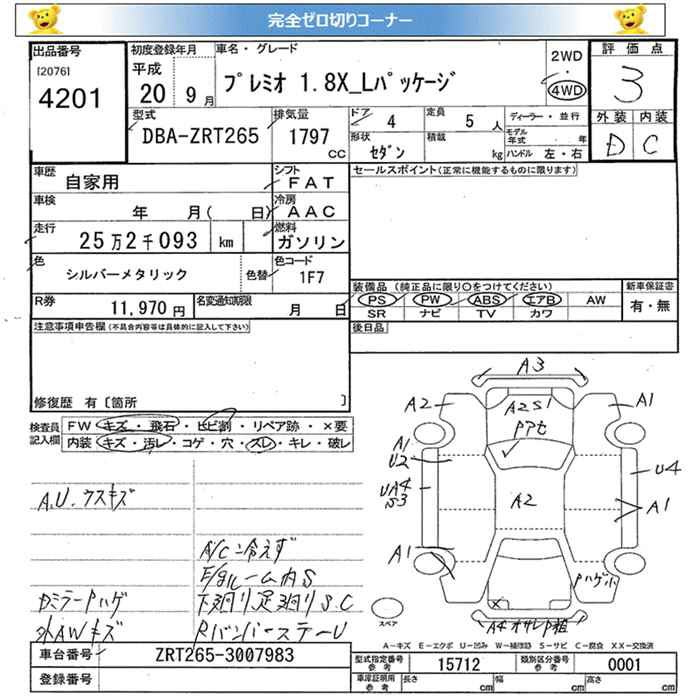 完全ゼロ切りコーナー
出品番号 初度登録年月 車名・グレード 2WD 評価点
[2076] 平成 プレミオ 1.8X_Lパッケージ ・ 3
4201 20 9月 4WD
外装 内装
型式 排気量 ドア 4 定員 5人 ディーラー・並行 D C
DBA-ZRT265 1797cc 形状 セダン 積載 kg モデル年式 ・ 年
ハンドル 左・右
車歴 自家用 シフト FAT セールスポイント(正常に機能するものに限ります)
車検 年 月( 日) 冷房 AAC
走行 25万2千093 km 燃料 ガソリン
色 シルバーメタリック 色替 色コード 1F7
装備品 (純正品に限り○をつけてください) 新車保証書
PS PW ABS エアB AW 有・無
R券 11,970円 名変通知期限 月 日 SR ナビ TV カワ
注意事項申告欄(不具合内容等は具体的に記入して下さい) 後日品
修復歴 有〔箇所 〕
検査員記入欄 FW キズ・飛石・ヒビ割・リペア跡・×要
内装 キズ・汚レ・コゲ・穴・スレ・キレ・破レ
A3
A2 A2S1 A1
PアセA1
U2 U4
UA4
S3 A2 A1
A1 Pハゲ小
A4 オサレP粗
スペア
A.U.ウスキズ
A/C冷えず
E/gルーム内S
Dミラー Pハゲ 下廻り足廻りS.C
外AWキズ RバンパーステーU
A-キズ E-エクボ U-凹み W-補修跡 S-サビ C-腐食 XX-交換済
車台番号 ZRT265-3007983 型式指定番号 参考 15712 類別区分番号 参考 0001
登録番号 車庫証明用 参考 長さ cm 幅 cm 高さ cm